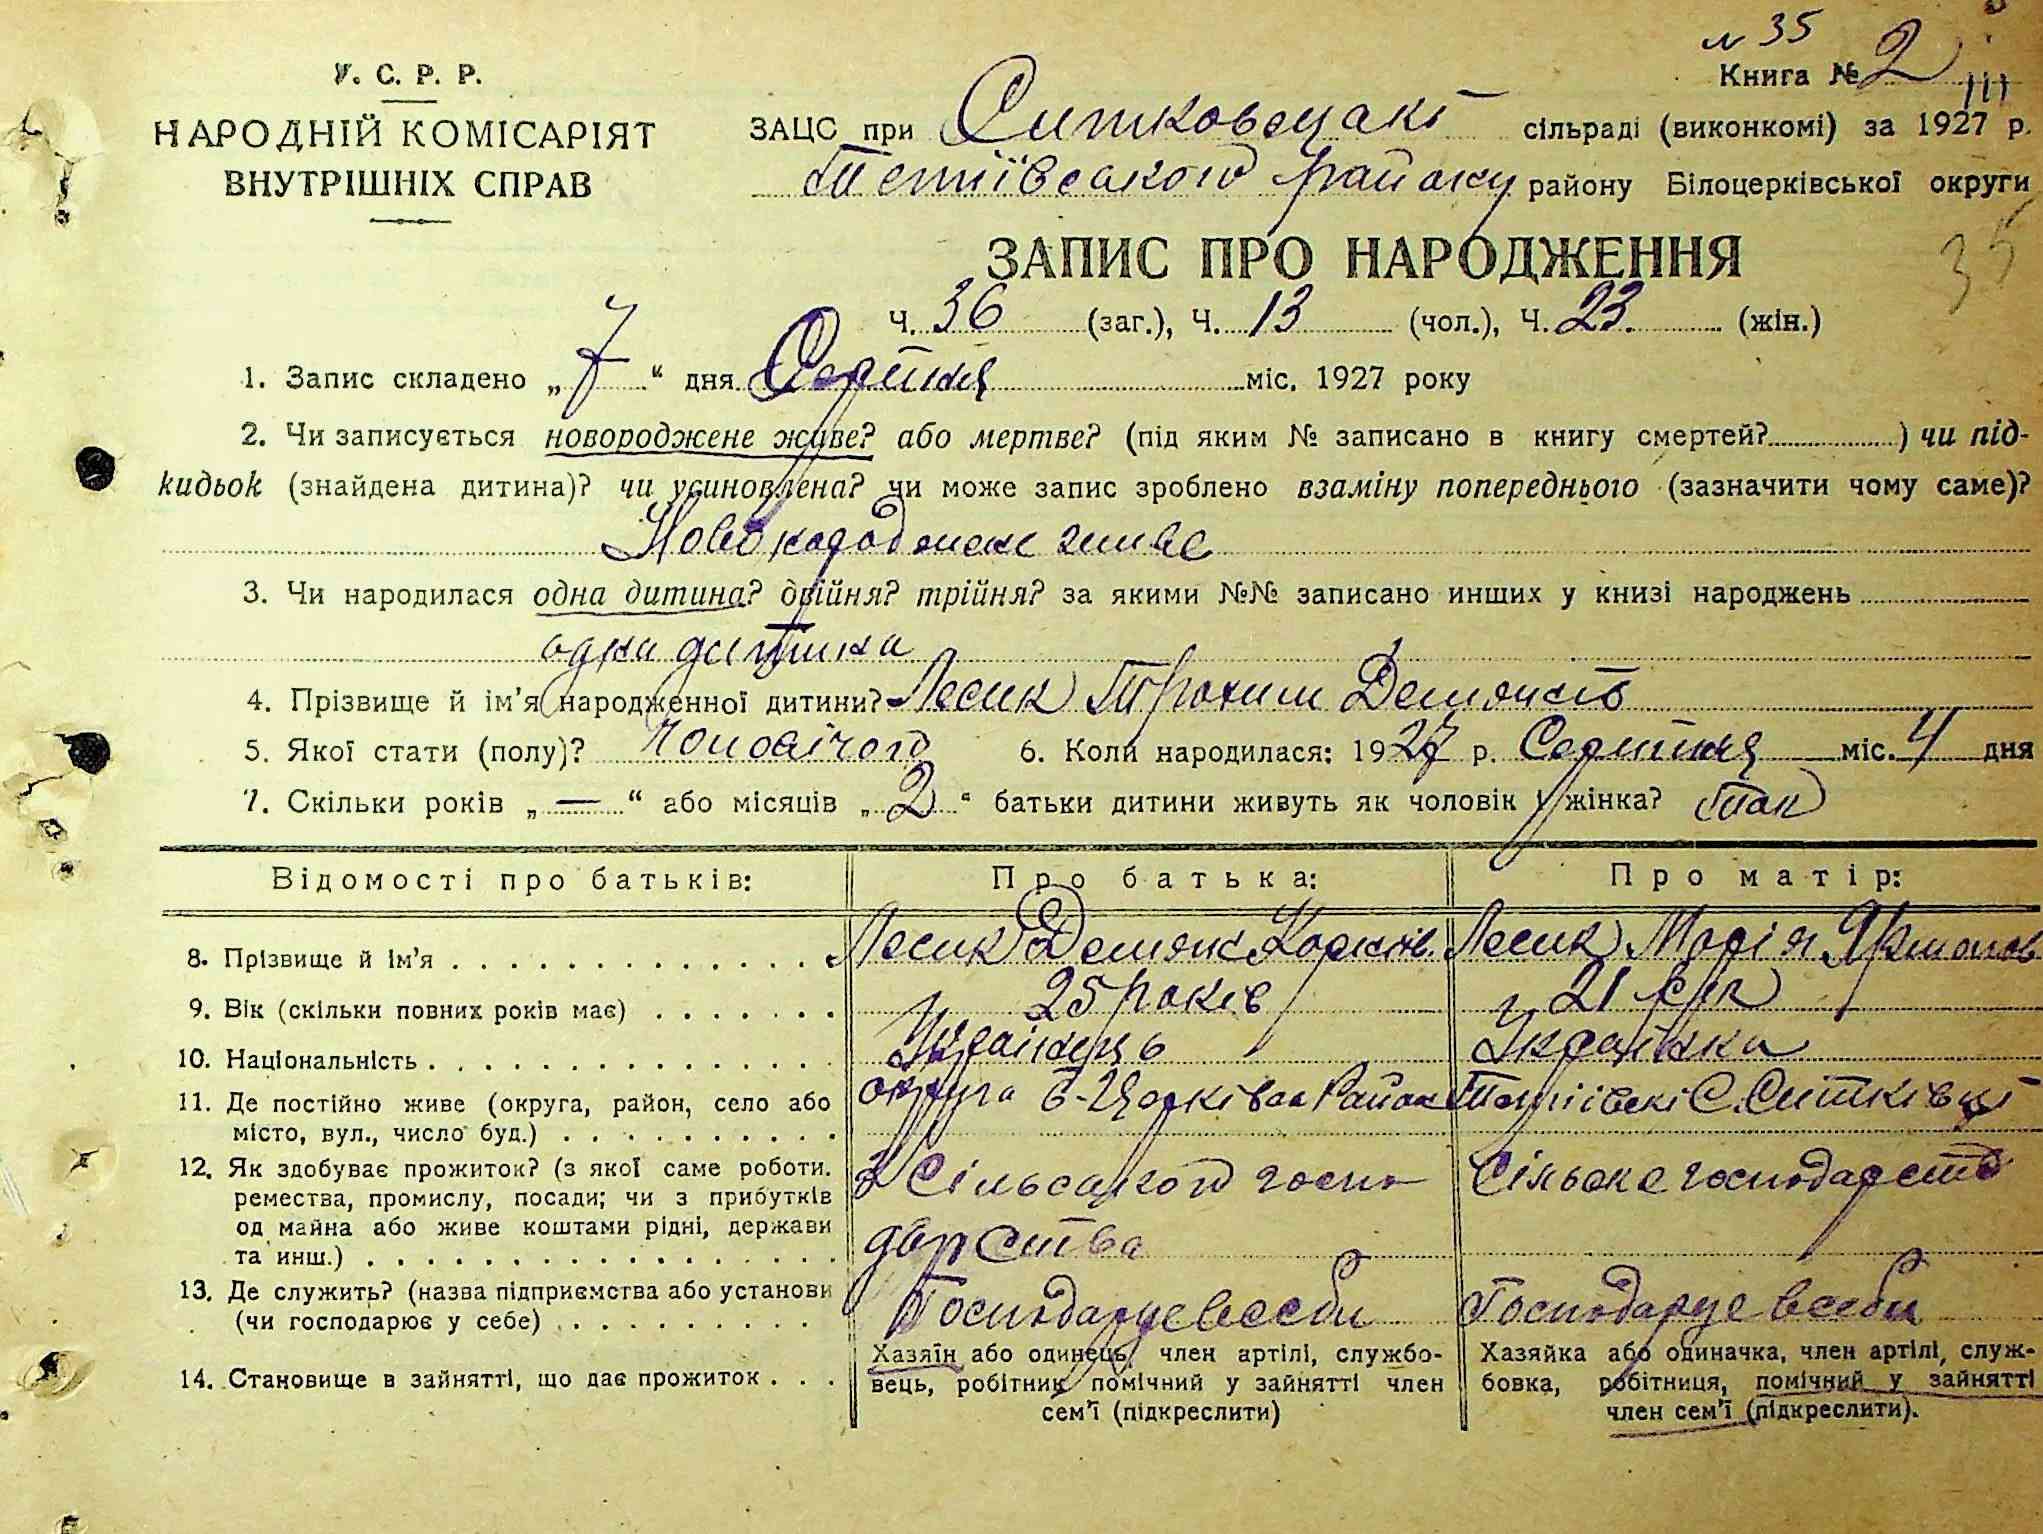 № 35
У. С. Р. Р.
Книга № 2
НАРОДНІЙ КОМІСАРІЯТ
ВНУТРІШНІХ СПРАВ
ЗАЦС при Ситковецькі сільраді (виконкомі) за 1927 р.
Тетіївського району району Білоцерківської округи
35
ЗАПИС ПРО НАРОДЖЕННЯ
Ч. 36 (заг.), Ч. 13 (чол.), Ч. 23. (жін.)
1. Запис складено „ 7 “ дня Серпня міс. 1927 року
2. Чи записується новороджене живе? або мертве? (під яким № записано в книгу смертей? ) чи під-
кидьок (знайдена дитина)? чи усиновлена? чи може запис зроблено взаміну попереднього (зазначити чому саме)?
живе
3. Чи народилася одна дитина? двійня? трійня? за якими №№ записано инших у книзі народжень
одна дитина
4. Прізвище й ім'я народженної дитини? Лесик Трохим
5. Якої стати (полу)? Чоловічого 6. Коли народилася: 1927 р. Серпня міс. 4 дня
7. Скільки років „ — “ або місяців „ 2 “ батьки дитини живуть як чоловік у жінка? Так
Відомості про батьків: Про батька: Про матір:
8. Прізвище й ім'я Лесик Демян Лесик Марія
9. Вік (скільки повних років має) 25 років 21 рік
10. Національність Українець Українка
11. Де постійно живе (округа, район, село або округа Б-Церківськ Район Тетіївські С. Ситківці
місто, вул., число буд.)
12. Як здобуває прожиток? (з якої саме роботи. з Сільського госпо Сільське господарство
ремества, промислу, посади; чи з прибутків
од майна або живе коштами рідні, держави дарства
та инш.)
13. Де служить? (назва підприємства або установи Господарує всеби Господарує всеби
(чи господарює у себе)
14. Становище в зайнятті, що дає прожиток
Хазяїн або одинець, член артілі, службо-
вець, робітник помічний у зайнятті член
сем'ї (підкреслити)
Хазяйка або одиначка, член артілі, служ-
бовка, робітниця, помічний у зайнятті
член сем'ї (підкреслити).